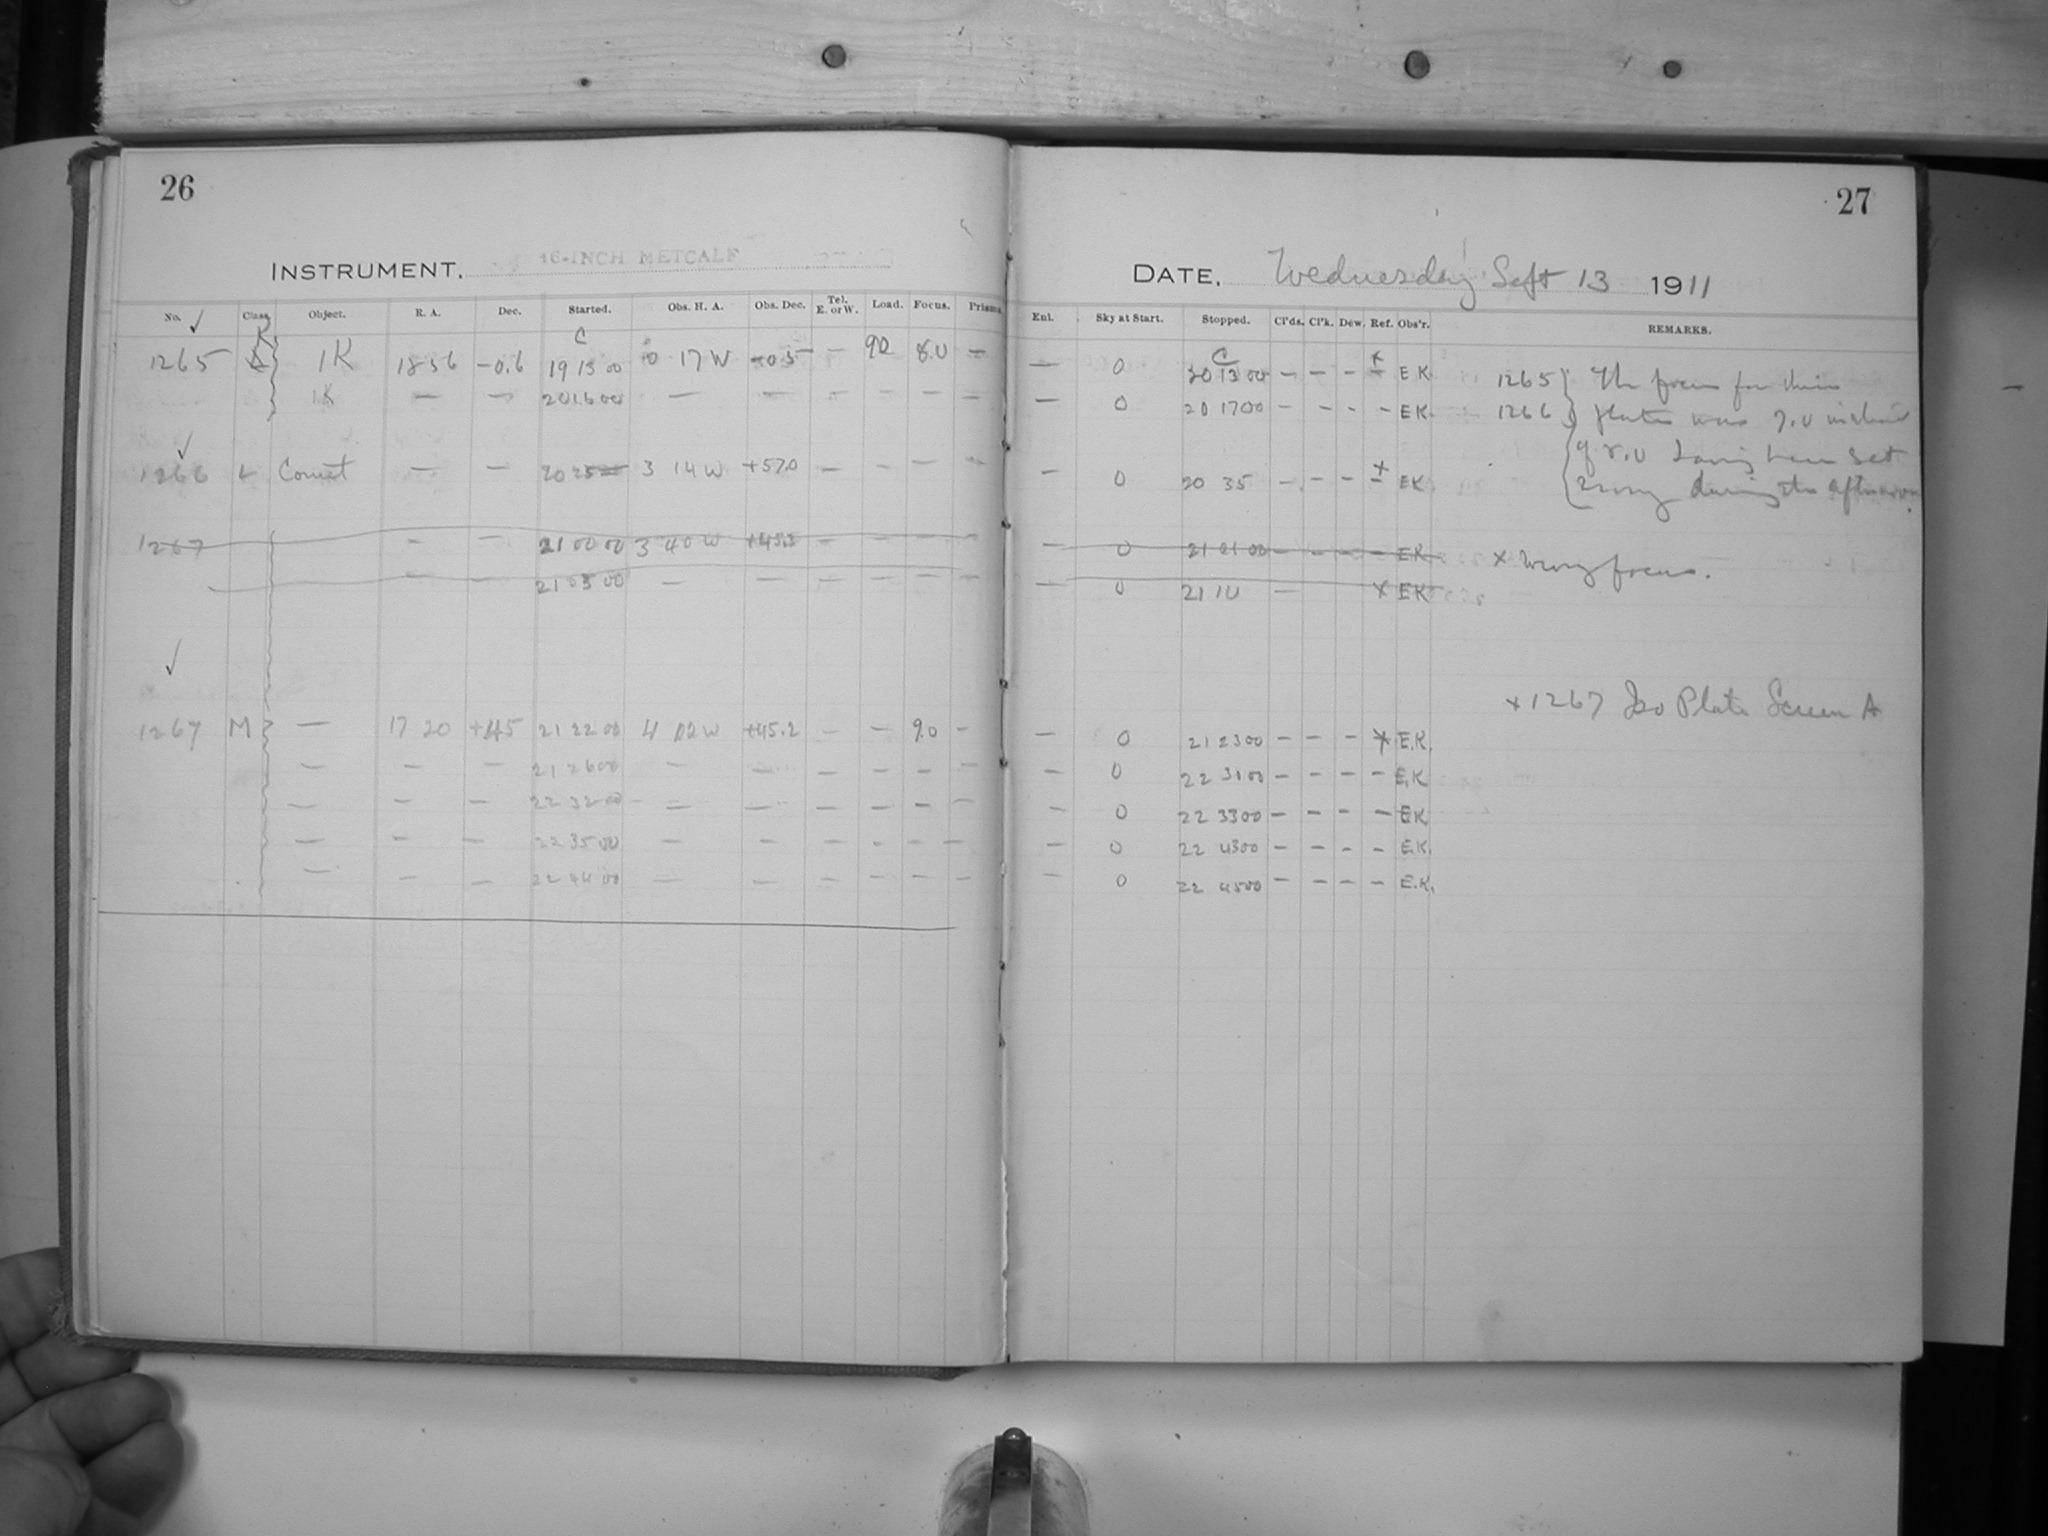 26
INSTRUMENT. 16-INCH METCALF
No. Class. Object. R. A. Dec. Started. Obs. H. A. Obs. Dec. Tel. E. or W. Load. Focus. Prism.
C
1265 K 1K 18 56 -0.6 19 13 00 0 17 W -0.5 — 90 8.0 —
1K — — 20 16 00 — — — — — —
1266 L Comet — — 20 25 3 14 W +57.0 — — — —
1267 — — 21 00 00 3 40 W +45.3 — — — —
— — 21 03 00 — — — — — —
1267 M — 17 20 +45 21 22 00 4 02 W +45.2 — — 9.0 —
— — — 21 26 00 — — — — — —
— — — 22 32 00 — — — — — —
— — — 22 35 00 — — — — — —
— — — 22 44 00 — — — — — —
27
DATE. Wednesday Sept 13 1911
Enl. Sky at Start. Stopped. Cl'ds. Cl'k. Dew. Ref. Obs'r. REMARKS.
C
— 0 20 13 00 — — — x EK 1265 } The focus for
— 0 20 17 00 — — — — EK. 1266 } plates was 7.0 instead
of 8.0 having been set
— 0 20 35 — — — x EK wrong during the afternoon.
— 0 21 01 00 — — — — EK x Wrong focus.
— 0 21 10 — x EK
x 1267 Iso Plate Screen A
— 0 21 23 00 — — — x E.K.
— 0 22 31 00 — — — — E.K
— 0 22 33 00 — — — — EK
— 0 22 43 00 — — — — E.K.
— 0 22 45 00 — — — — E.K.